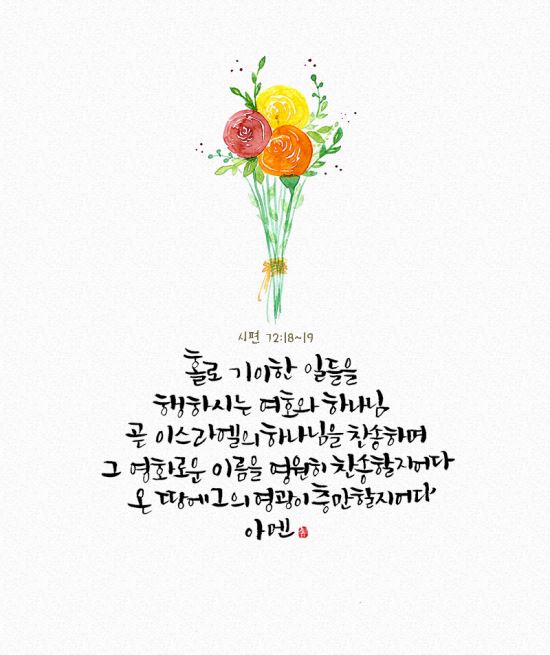 시편 72:18~19
홀로 기이한 일들을
행하시는 여호와 하나님
곧 이스라엘의 하나님을 찬송하며
그 영화로운 이름을 영원히 찬송할지어다
온 땅에 그의 영광이 충만할지어다
아멘